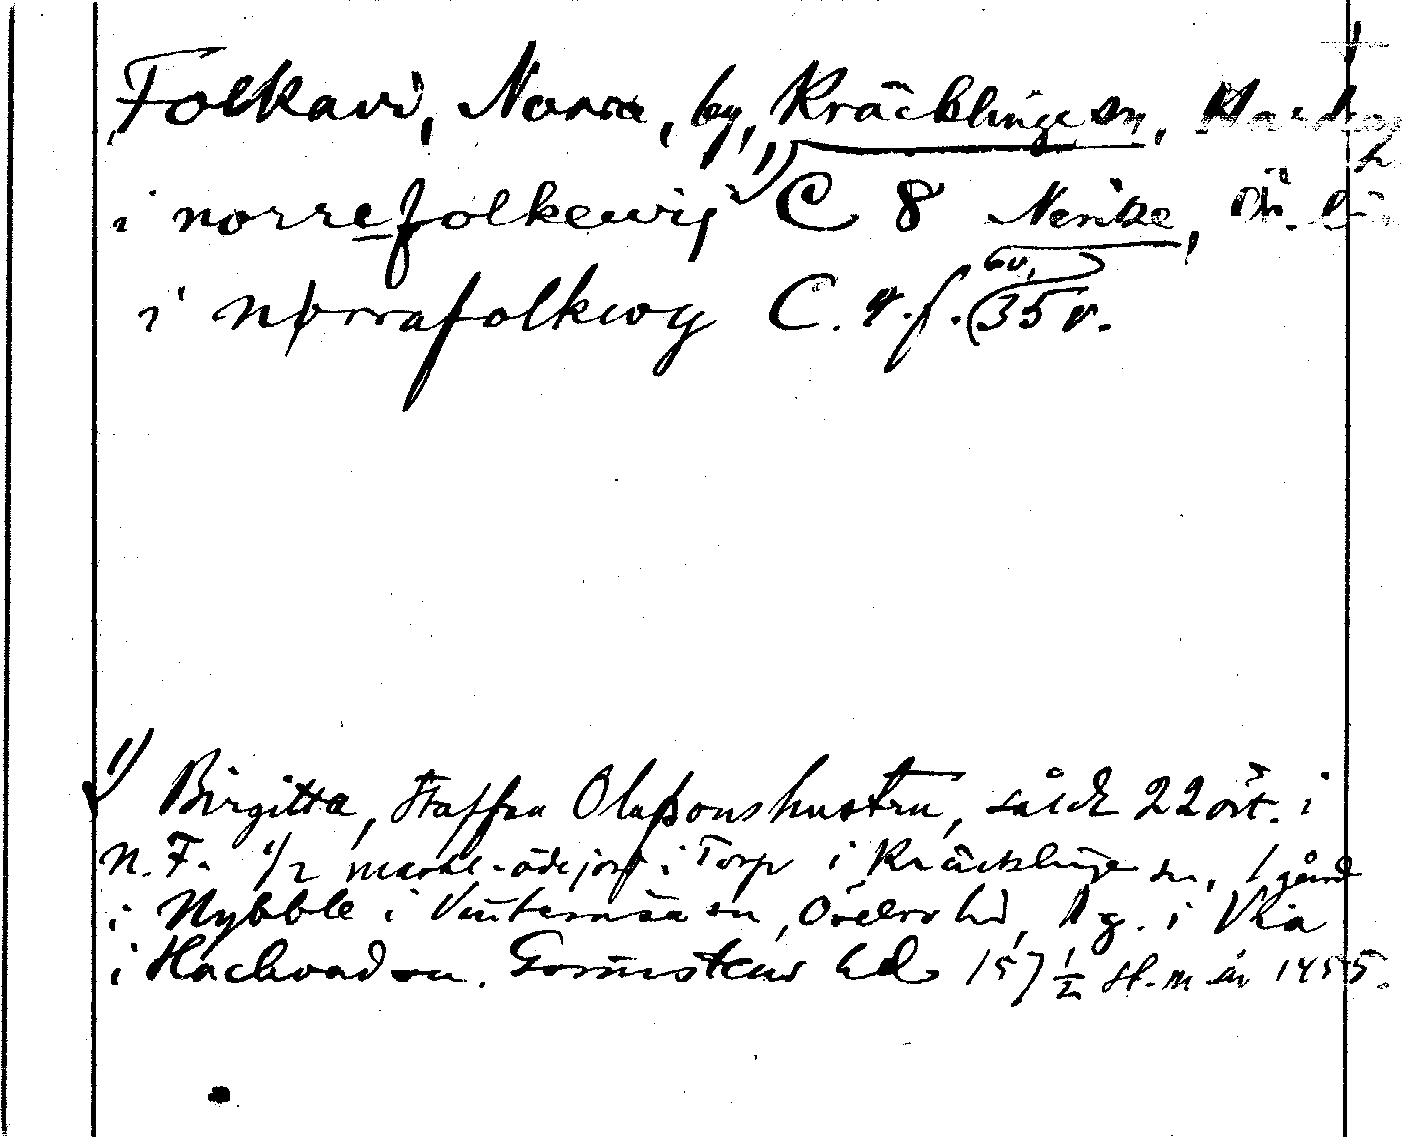 Folkavi, Norra, by, Kräcklinge sn,
i norrefolkewij 1) C 8 Nerike, Ör. län
i norrafolkwg C. 4. f. (35 v.
1) Birgitta, Staffan Olaßons hustru, sålde 22 ört. i
N. F. 1/2 marks-ödejord i Torp i Kräcklinge sn, 1 gård
i Nybble i Vinternsåsa sn, Örebro hd, 1 g. i Via
i Hackvad sn. Grimstens hd 157 1/2 st. m år 1455.